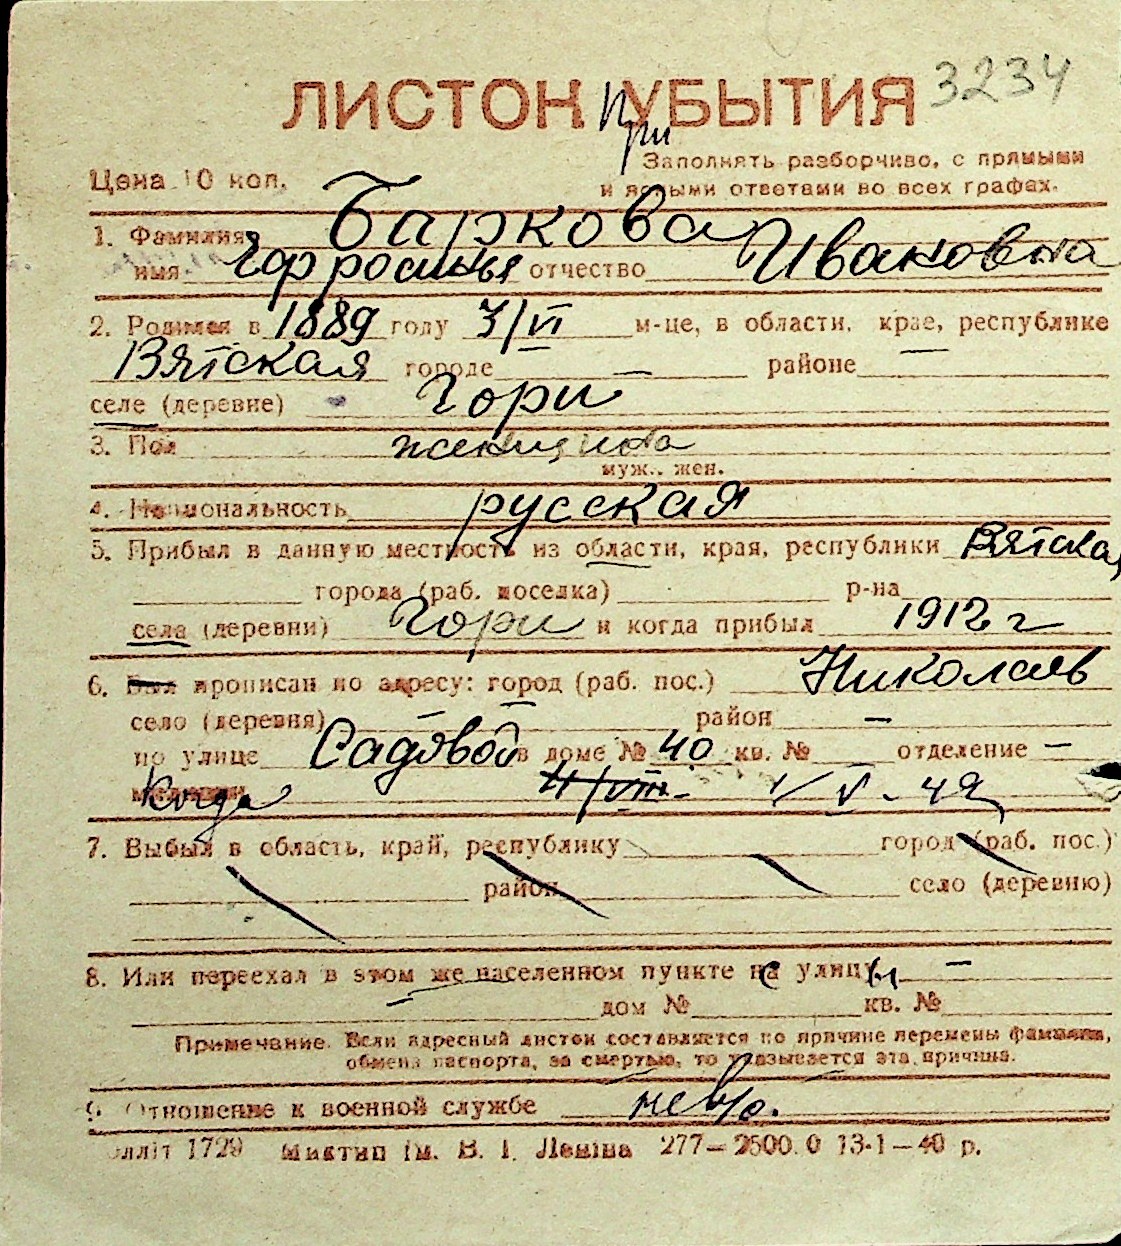 3234
ЛИСТОК При УБЫТИЯ
Заполнять разборчиво, с прямыми
Цена 10 коп.
и ясными ответами во всех графах.
1. Фамилия Баркова
имя отчество Ивановна
2. Родился в 1889 году 3/VI м-це, в области, крае, республике
Вятская городе — районе —
селе (деревне) Гори
3. Пол женщина
муж., жен.
4. Национальность русская
5. Прибыл в данную местность из области, края, республики Вятская
города (раб. поселка) р-на
села (деревни) Гори и когда прибыл 1912 г
6. Был прописан по адресу: город (раб. пос.) Николаев
село (деревня) — район —
по улице Садовой в доме № 40 кв. № отделение —
Когда 4/VIII - 1/V - 42
7. Выбыл в область, край, республику город (раб. пос.)
район село (деревню)
8. Или переехал в этом же населенном пункте с улицы —
— дом № кв. №
Примечание. Если адресный листок составляется по причине перемены фамилии,
обмена паспорта, за смертью, то указывается эта причина.
9. Отношение к военной службе нев/о.
1729 Миктип ім. В. І. Леніна 277—2500.0 13-1—40 р.